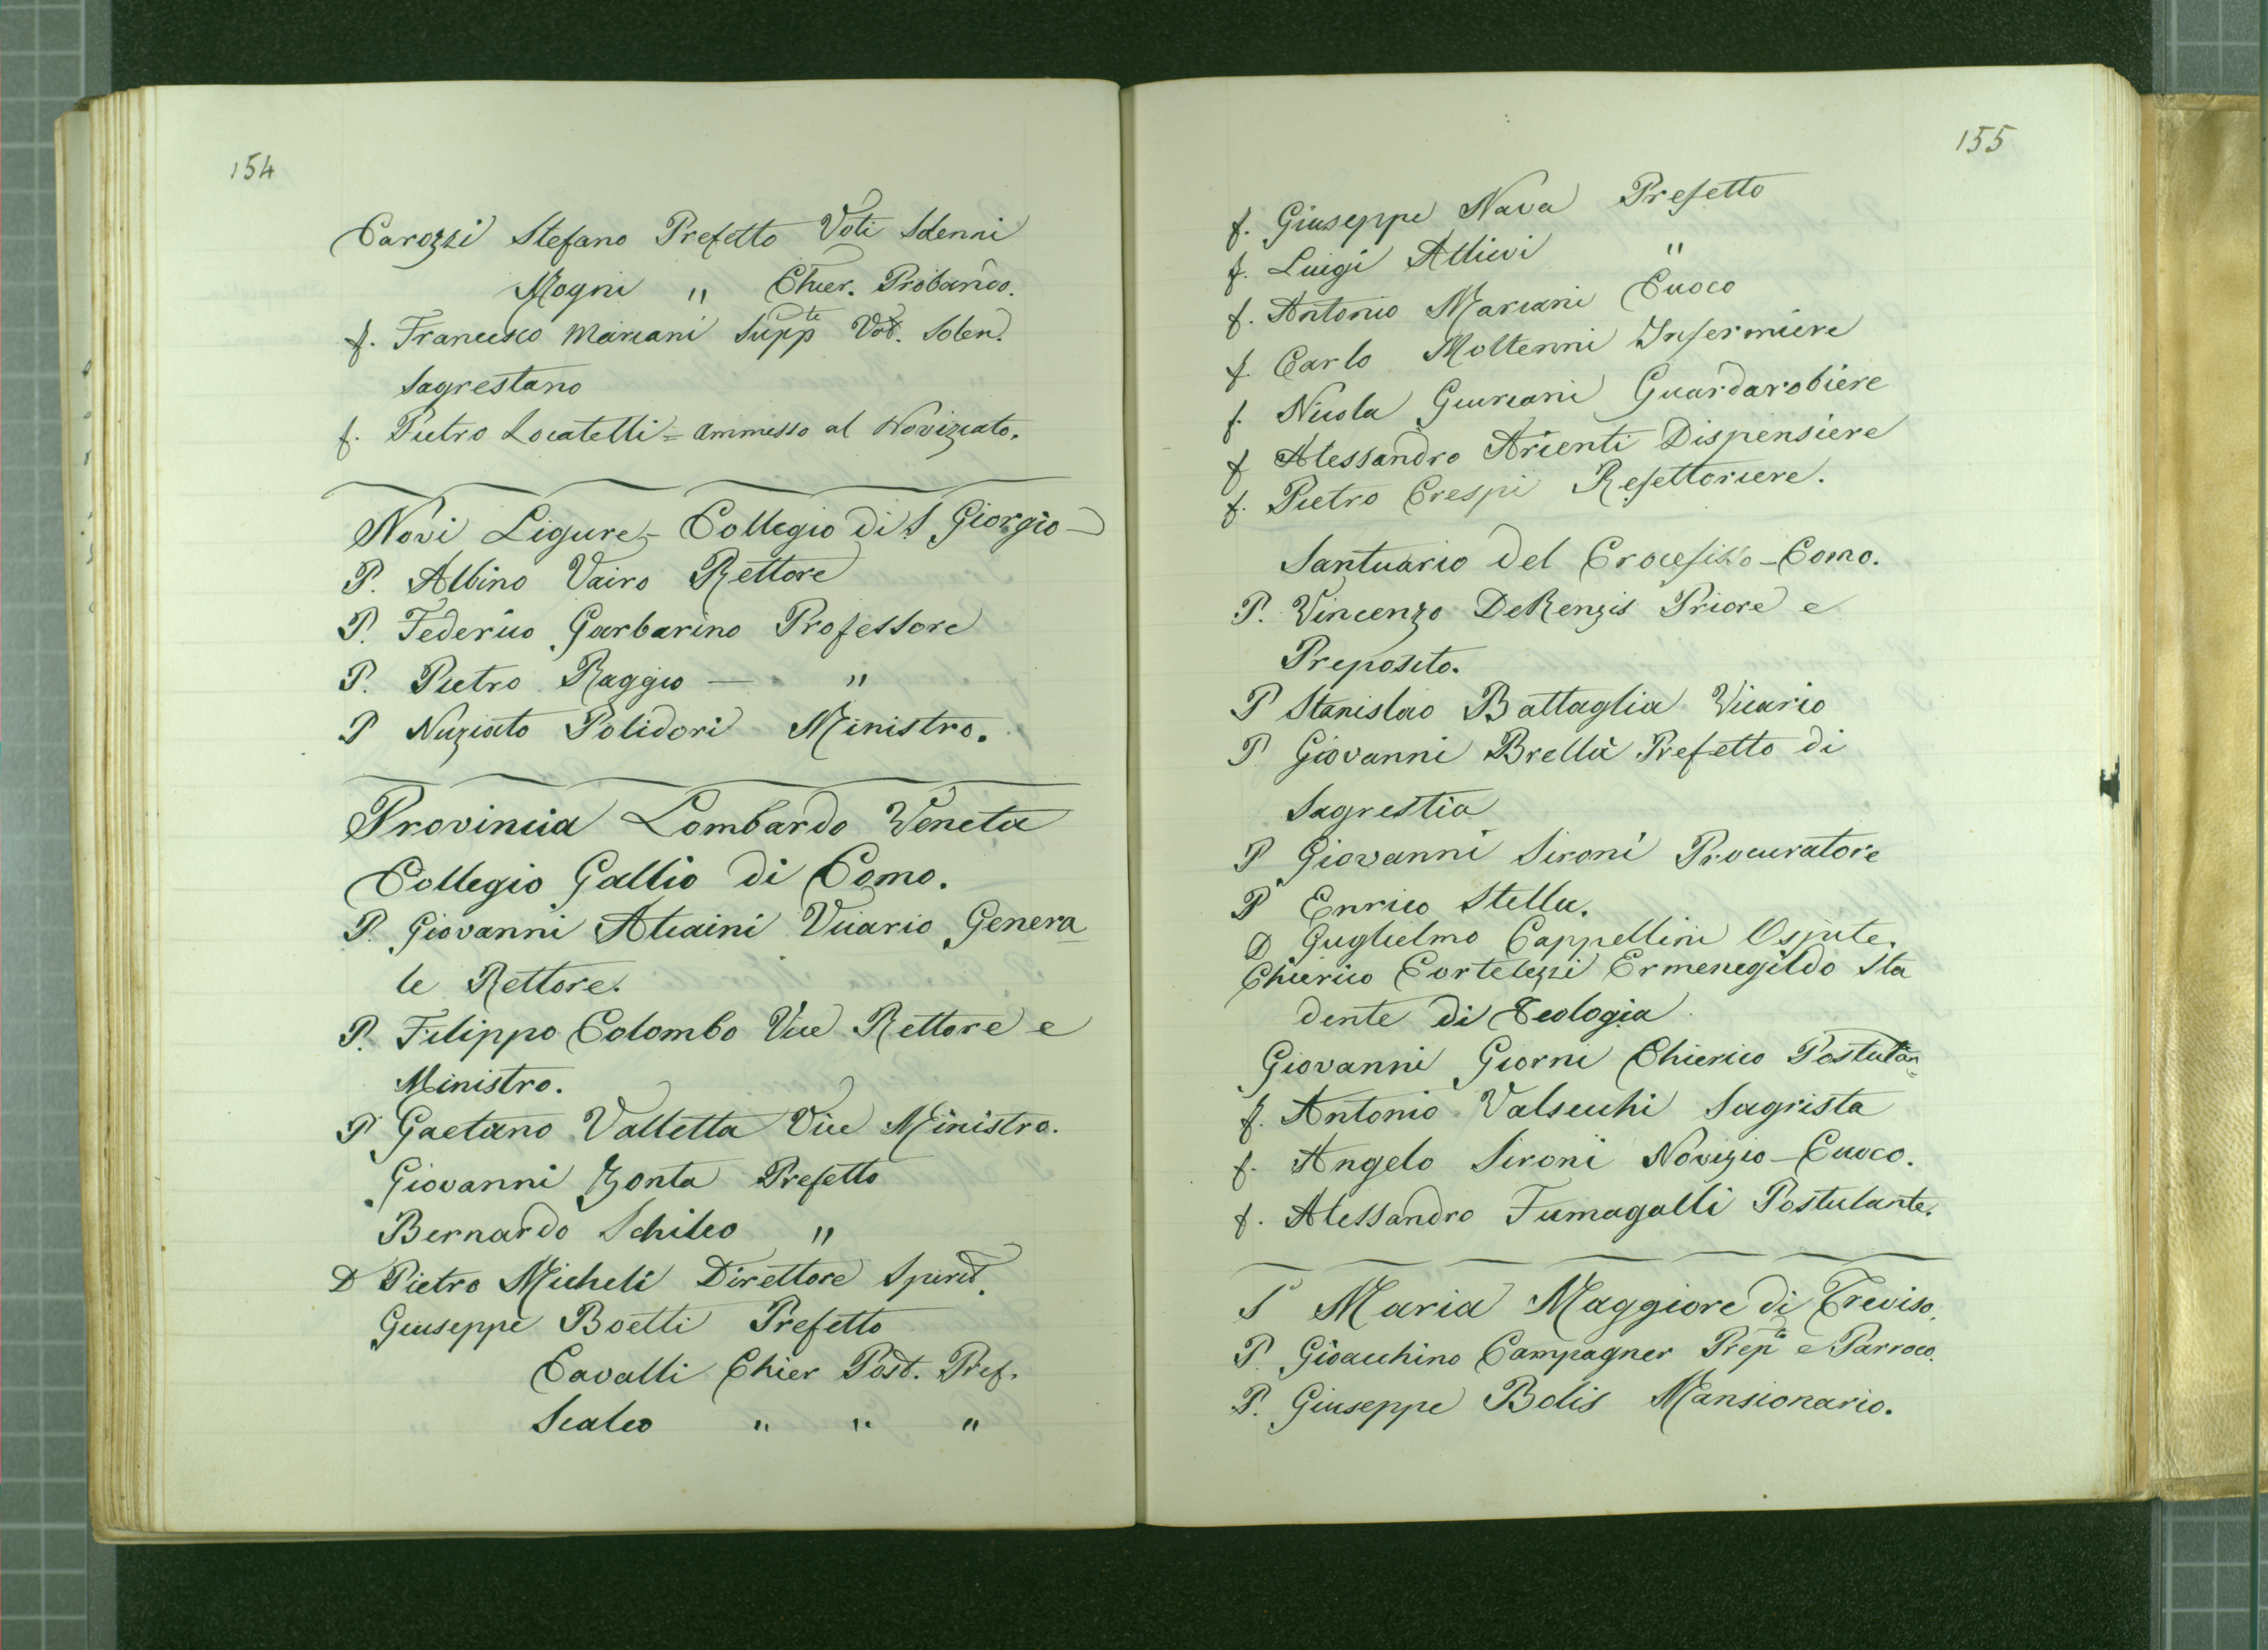 154
Carozzi Stefano Prefetto Voti Solenni
Mogni " Chier. Probando.
f. Francesco Marcani Supp.te Vot. Solen.
Sagrestano
f. Pietro Locatelli = Ammesso al Noviziato.
Novi Ligure - Collegio di S. Giorgio -
P. Albino Vairo Rettore
P. Federico Garbarino Professore
P. Pietro Raggio — "
P Nuziato Polidori Ministro.
Provincia Lombardo Veneta
Collegio Gallio di Como.
P. Giovanni Alcaini Vicario Genera
le Rettore.
P. Filippo Colombo Vice Rettore e
Ministro.
P Gaetano Valletta Vice Ministro.
Giovanni Zonta Prefetto
Bernardo Schileo "
D Pietro Micheli Direttore Spirit.
Giuseppe Boetti Prefetto
Cavalli Chier Post. Pref.
Scaleo " " "
155
f. Giuseppe Nava Prefetto
f. Luigi Allievi "
f. Antonio Marcani Cuoco
f. Carlo Moltenni Infermiere
f. Nicola Gurcani Guardarobiere
f Alessandro Arienti Dispensiere
f. Pietro Crespi Refettoriere.
Santuario del Crocefisso - Como.
P. Vincenzo DeRenzis Priore e
Preposito.
P Stanislao Battaglia Vicario
P Giovanni Brella Prefetto di
Sagrestia
P Giovanni Sironi Procuratore
P Enrico Stella.
D Guglielmo Cappellini Ospite.
Chierico Cortelezzi Ermenegildo Stu
dente di Teologia
Giovanni Giorni Chierico Postulan
f. Antonio Valsecchi Sagrista
f. Angelo Sironi Novizio - Cuoco.
f. Alessandro Fumagalli Postulante.
S Maria Maggiore di Treviso.
P. Gioacchino Campagner Prep.to e Parroco.
P. Giuseppe Bolis Mansionario.